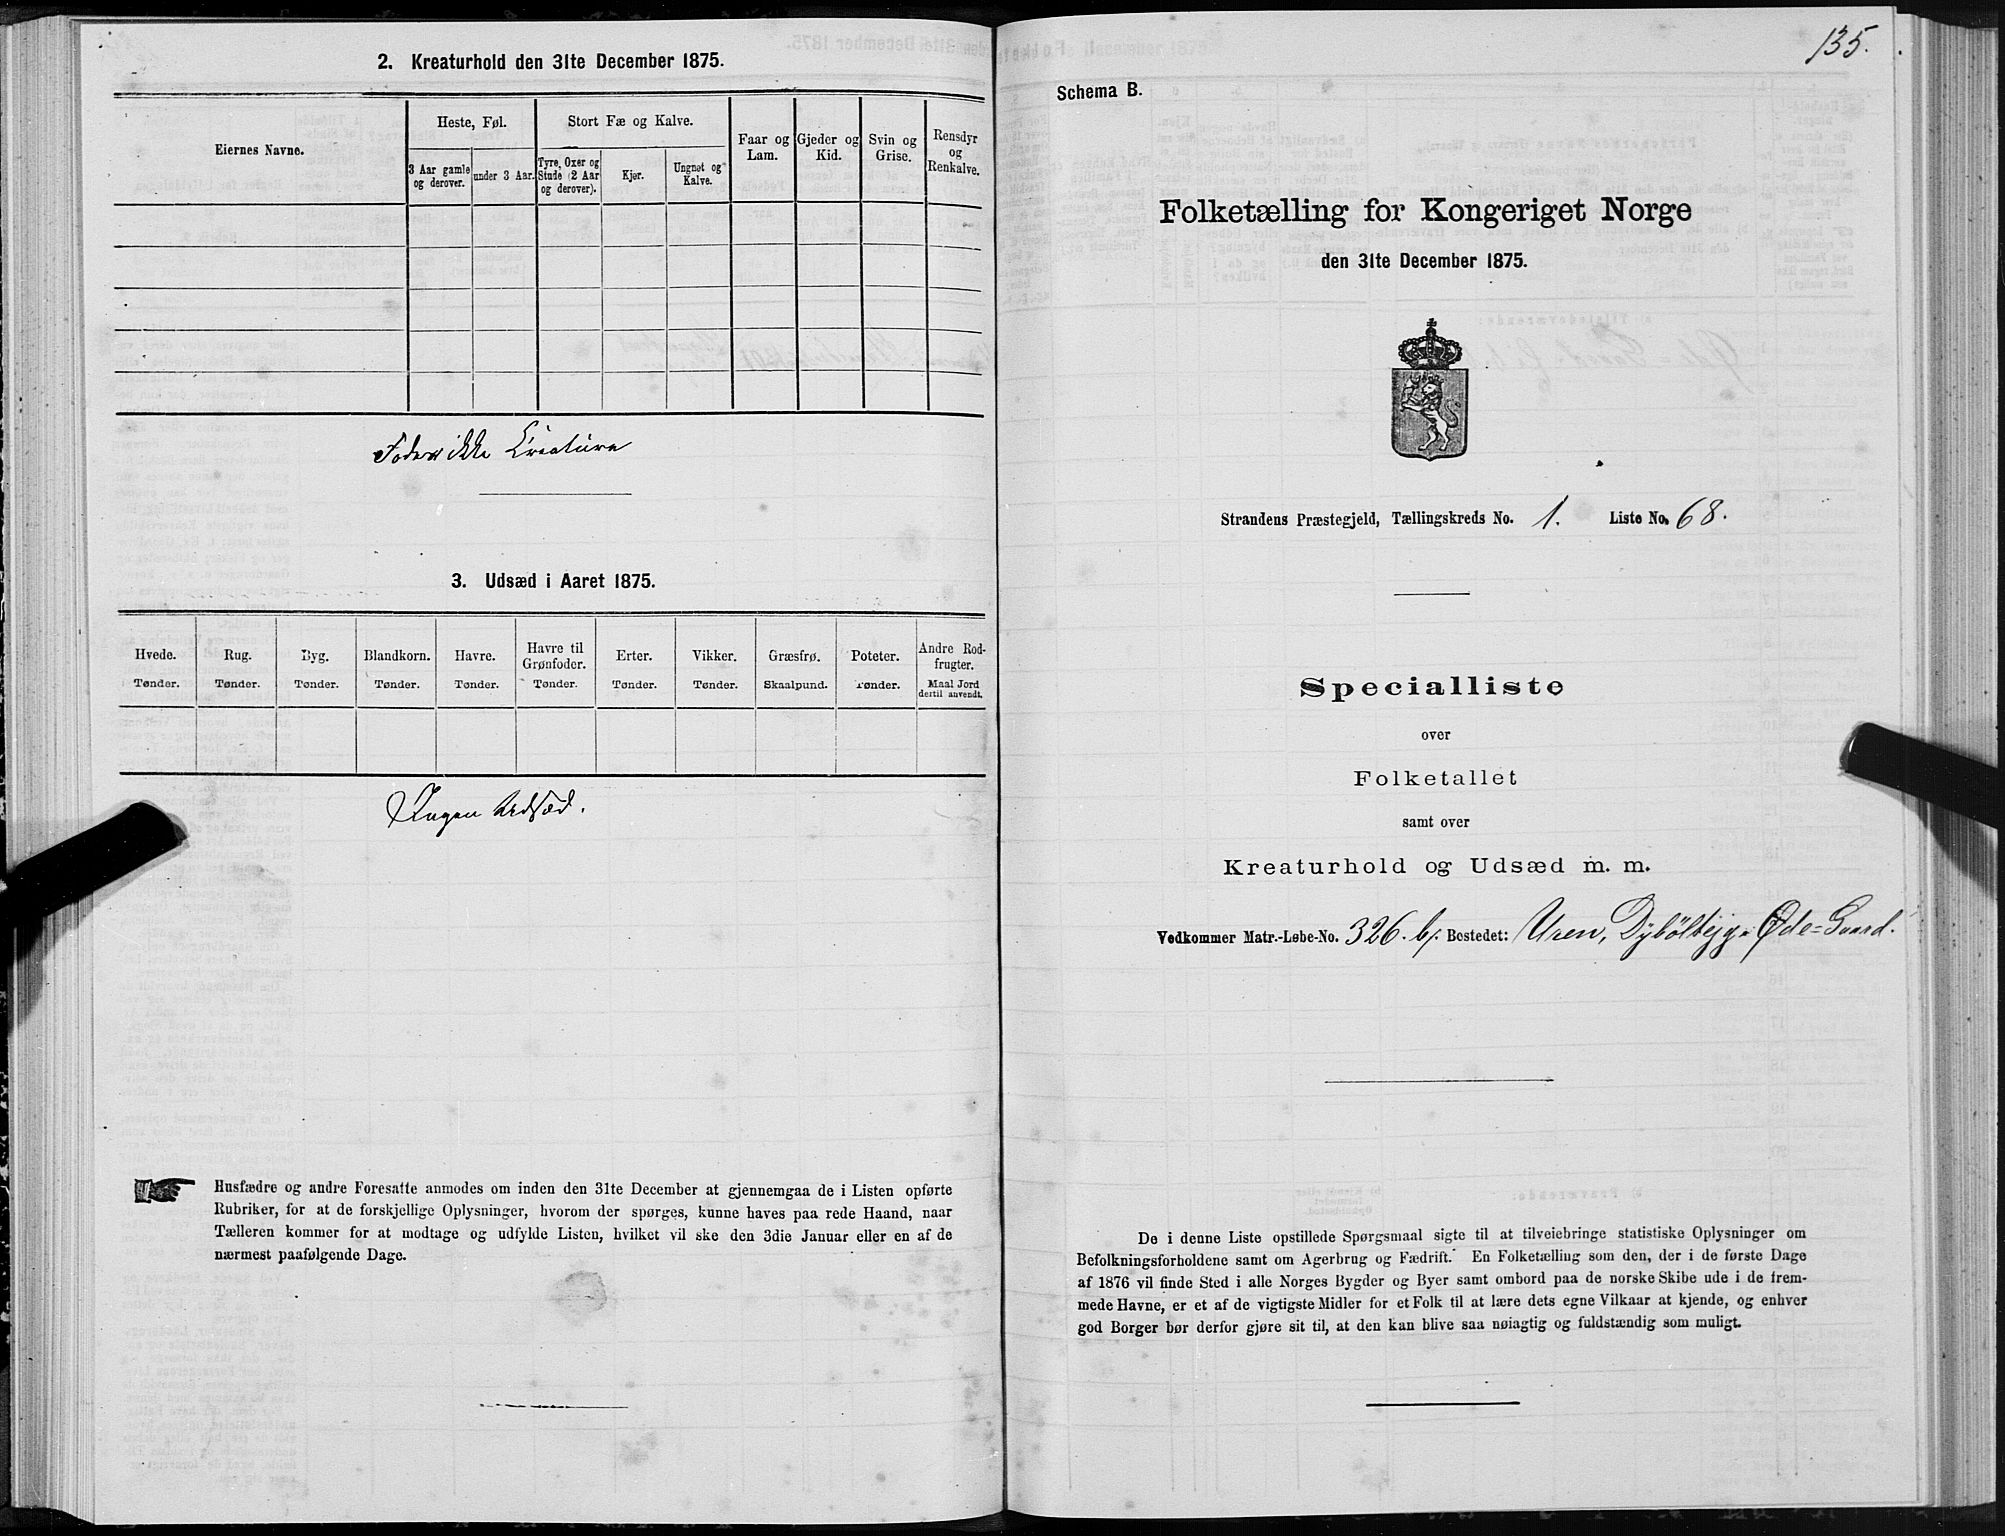 2. Kreaturhold den 31te December 1875.
Eiernes Navne.
Heste, Føl.
Stort Fæ og Kalve.
Faar og Lam.
Gjeder og Kid.
Svin og Grise.
Rensdyr og Renkalve.
3 Aar gamle og derover.
under 3 Aar.
Tyre, Oxer og Stude (2 Aar og derover).
Kjør.
Ungnøt og Kalve.
Foder ikke Creature
3. Udsæd i Aaret 1875.
Hvede. Rug. Byg. Blandkorn. Havre. Havre til Grønfoder. Erter. Vikker. Græsfrø. Poteter. Andre Rodfrugter.
Tønder. Tønder. Tønder. Tønder. Tønder. Tønder. Tønder. Tønder. Skaalpund. Tønder. Maal Jord dertil anvendt.
Ingen Udsæd.
Husfædre og andre Foresatte anmodes om inden den 31te December at gjennemgaa de i Listen opførte
Rubriker, for at de forskjellige Oplysninger, hvorom der spørges, kunne haves paa rede Haand, naar
Tælleren kommer for at modtage og udfylde Listen, hvilket vil ske den 3die Januar eller en af de
nærmest paafølgende Dage.
135.
Schema B.
Folketælling for Kongeriget Norge
den 31te December 1875.
Strandens Præstegjeld, Tællingskreds No. 1. Liste No. 68.
Specialliste
over
Folketallet
samt over
Kreaturhold og Udsæd m. m.
Vedkommer Matr.-Løbe-No. 326. b. Bostedet: Uren, Dyböltejg Øde=Gaard.
De i denne Liste opstillede Spørgsmaal sigte til at tilveiebringe statistiske Oplysninger om
Befolkningsforholdene samt om Agerbrug og Fædrift. En Folketælling som den, der i de første Dage
af 1876 vil finde Sted i alle Norges Bygder og Byer samt ombord paa de norske Skibe ude i de frem-
mede Havne, er et af de vigtigste Midler for et Folk til at lære dets egne Vilkaar at kjende, og enhver
god Borger bør derfor gjøre sit til, at den kan blive saa nøiagtig og fuldstændig som muligt.